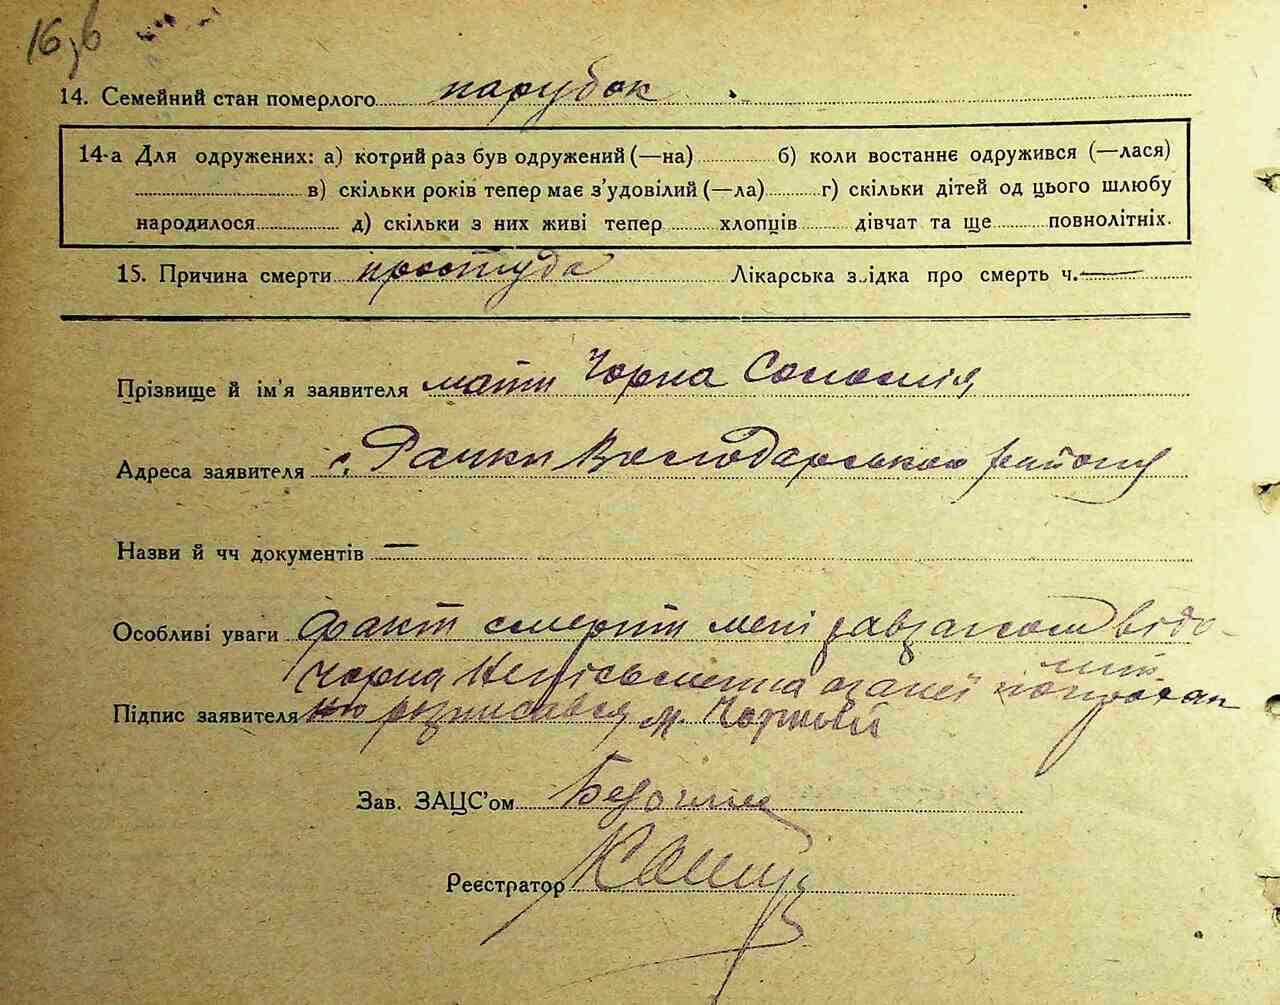 16зв
14. Семейний стан померлого парубок
14-а Для одружених: а) котрий раз був одружений (—на) б) коли востаннє одружився (—лася)
в) скільки років тепер має з’удовілий (—ла) г) скільки дітей од цього шлюбу
народилося д) скільки з них живі тепер хлопців дівчат та ще повнолітніх.
15. Причина смерти простуда Лікарська звідка про смерть ч. —
Прізвище й ім'я заявителя мати Чорна Соломія
Адреса заявителя с. Рачки Володарського району
Назви й чч документів —
Особливі уваги Факт смерти мені завзагсом відо-
мий.
Чорна Неписьменна за неї
Підпис заявителя розписався М. Чорновіл
Зав. ЗАЦС’ом
Реєстратор